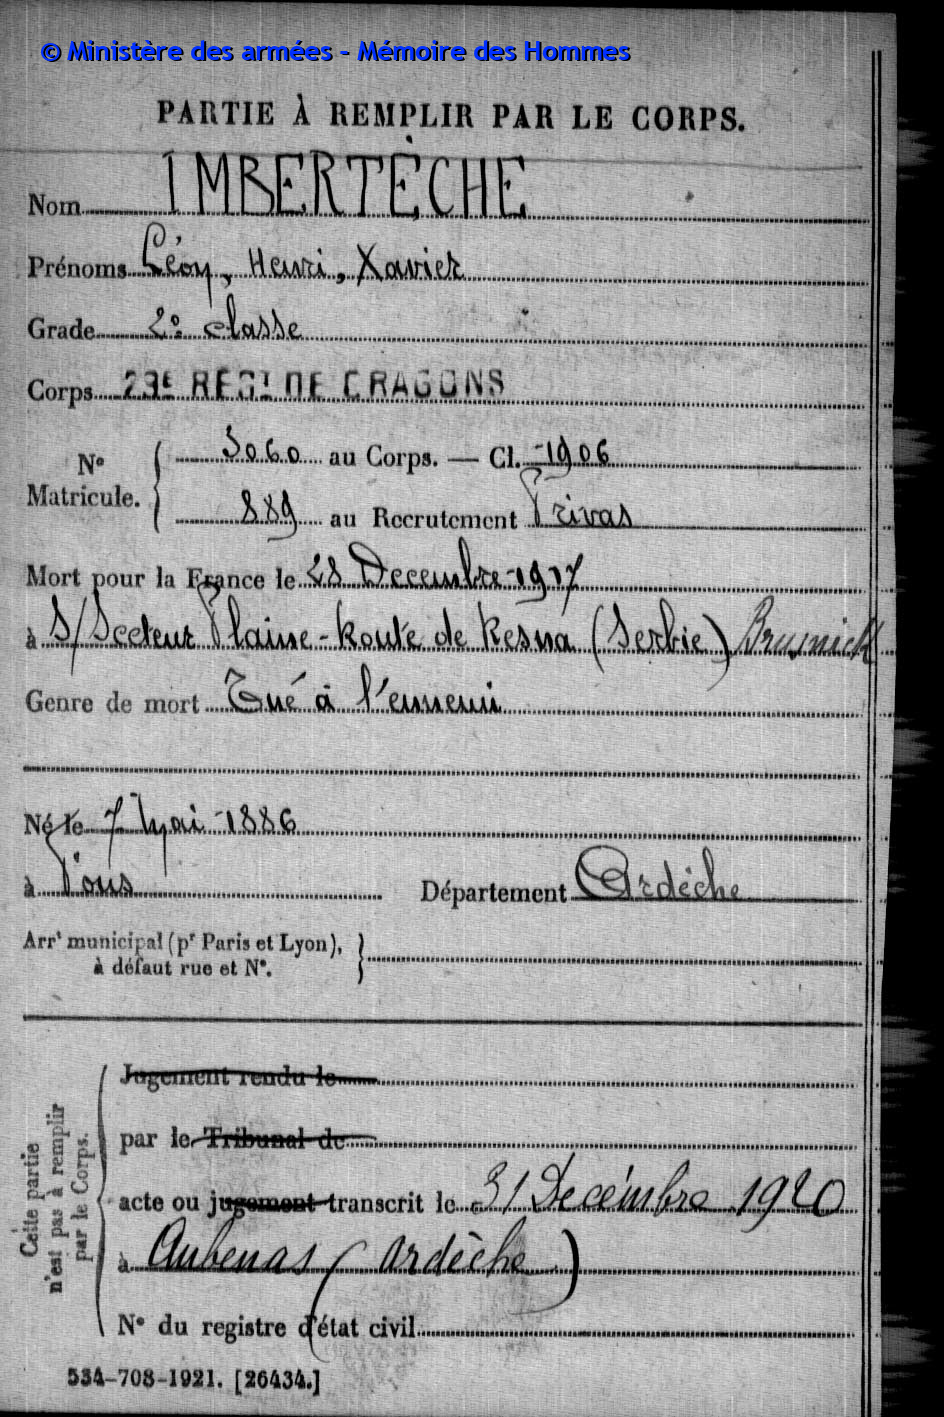 © Ministère des armées - Mémoire des Hommes
PARTIE À REMPLIR PAR LE CORPS.
Nom IMBERTÈCHE
Prénoms Léon, Henri, Xavier
Grade 2e classe
Corps 23E REGT DE DRAGONS
No Matricule. { 3060 au Corps. — Cl. 1906
889 au Recrutement Privas
Mort pour la France le 28 Decembre 1917
à S/Secteur Plaine - Route de Resna (Serbie) Brusnick
Genre de mort Tué à l'ennemi
Né le 7 Mai 1886
à Vous Département Ardèche
Arrt municipal (pr Paris et Lyon), à défaut rue et No. }
Cette partie n'est pas à remplir par le Corps.
Jugement rendu le
par le Tribunal de
acte ou jugement transcrit le 31 Decémbre 1920
à Aubenas (Ardèche)
No du registre d'état civil
534-708-1921. [26434.]